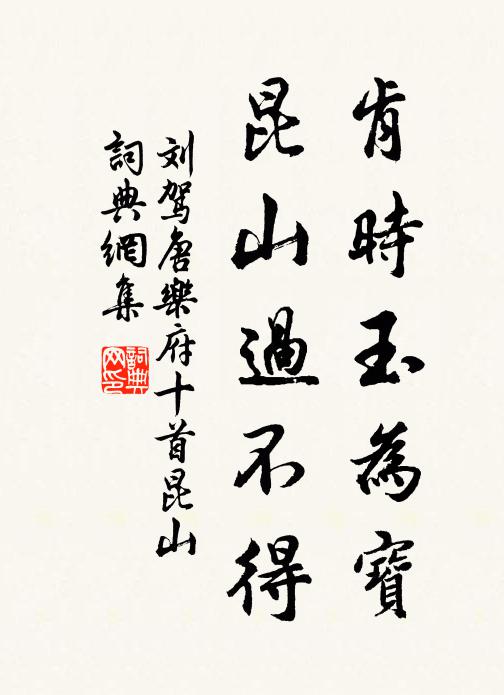 肯時玉為寶
昆山過不得
刘驾唐樂府十首昆山
詞典網集
詞典
网印